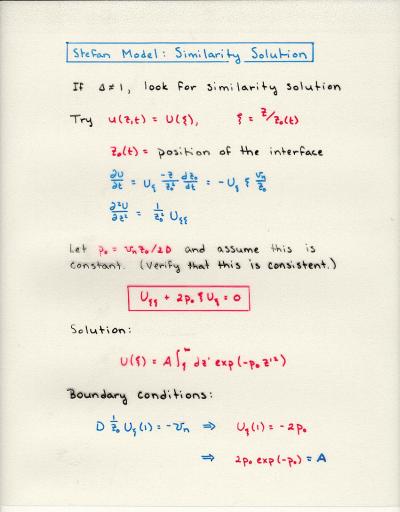 Stefan Model: Similarity Solution
If Δ≠1, look for similarity solution
Try u(z,t) = U(ξ), ξ = z/z₀(t)
z₀(t) = position of the interface
∂U/∂t = U_ξ (-z/z₀²) (dz₀/dt) = -U_ξ ξ (v_n/z₀)
∂²U/∂z² = (1/z₀²) U_ξξ
Let p₀ = v_n z₀/2D and assume this is
constant. (Verify that this is consistent.)
U_ξξ + 2p₀ ξ U_ξ = 0
Solution:
U(ξ) = A ∫_ξ^∞ dz' exp(-p₀ z'²)
Boundary conditions:
D (1/z₀) U_ξ(1) = -v_n ⇒ U_ξ(1) = -2p₀
⇒ 2p₀ exp(-p₀) = A